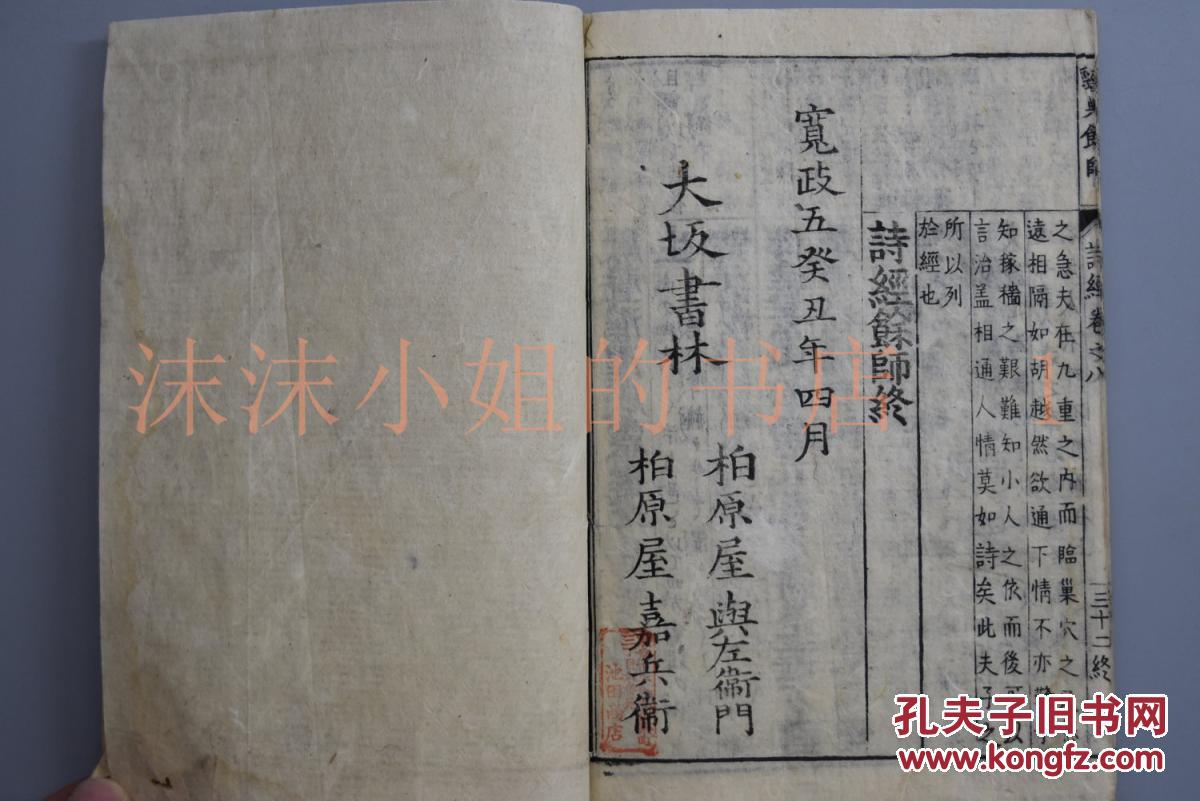 經典餘師
詩經卷之八
三十二終
之急夫在九重之内而臨巢穴之
遠相隔如胡越然欲通下情不亦難
知稼穡之艱難知小人之依而後可以
言治盖相通人情莫如詩矣此夫子之
所以列
於經也
詩經餘師終
寬政五癸丑年四月
大坂書林
柏原屋與左衞門
柏原屋嘉兵衞
池田
店
沫沫小姐的书店
孔夫子旧书网
www.kongfz.com